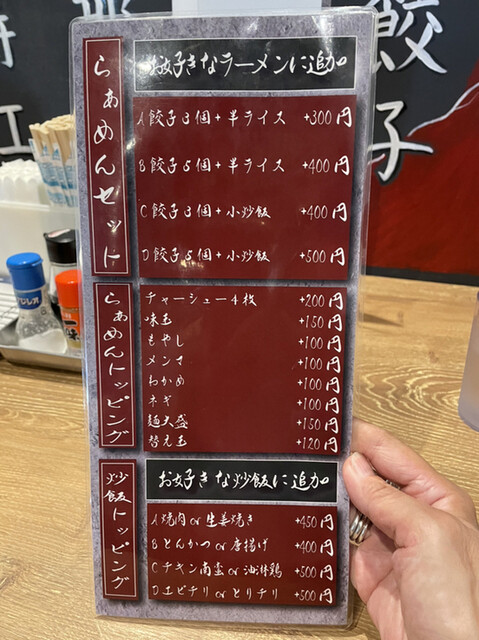 らぁめんセット
お好きなラーメンに追加
A 餃子3個+半ライス +300円
B 餃子5個+半ライス +400円
C 餃子3個+小炒飯 +400円
D 餃子5個+小炒飯 +500円
らぁめんトッピング
チャーシュー4枚 +200円
味玉 +150円
もやし +100円
メンマ +100円
わかめ +100円
ネギ +100円
麺大盛 +150円
替え玉 +120円
炒飯トッピング
お好きな炒飯に追加
A 焼肉or生姜焼き +450円
B とんかつor唐揚げ +400円
C チキン南蛮or油淋鶏 +500円
D エビチリorとりチリ +500円
餃子